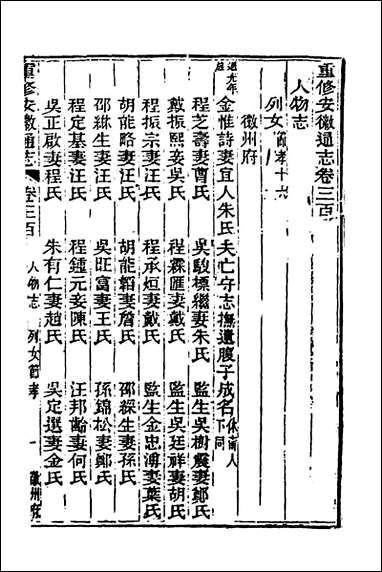 重修安徽通志卷三百
人物志
列女 節孝十六
徽州府
道光年 金惟詩妻宜人朱氏夫亡守志撫遺腹子成名 休甯人下同
程芝壽妻曹氏 吳駿標繼妻朱氏 監生吳樹震妻鄭氏
戴振熙妾吳氏 程霖匯妻戴氏 監生吳廷祥妻胡氏
程振宗妻汪氏 程承烜妻戴氏 監生金忠溥妻葉氏
胡能略妻汪氏 胡能韜妻詹氏 邵綵生妻孫氏
邵綝生妻汪氏 吳旺富妻王氏 孫錦松妻鄭氏
程定基妻汪氏 程鍾元妾陳氏 汪邦齡妻何氏
吳正啟妻程氏 朱有仁妻趙氏 吳定選妻金氏
重修安徽通志 卷三百 人物志 列女節孝 一 徽州府